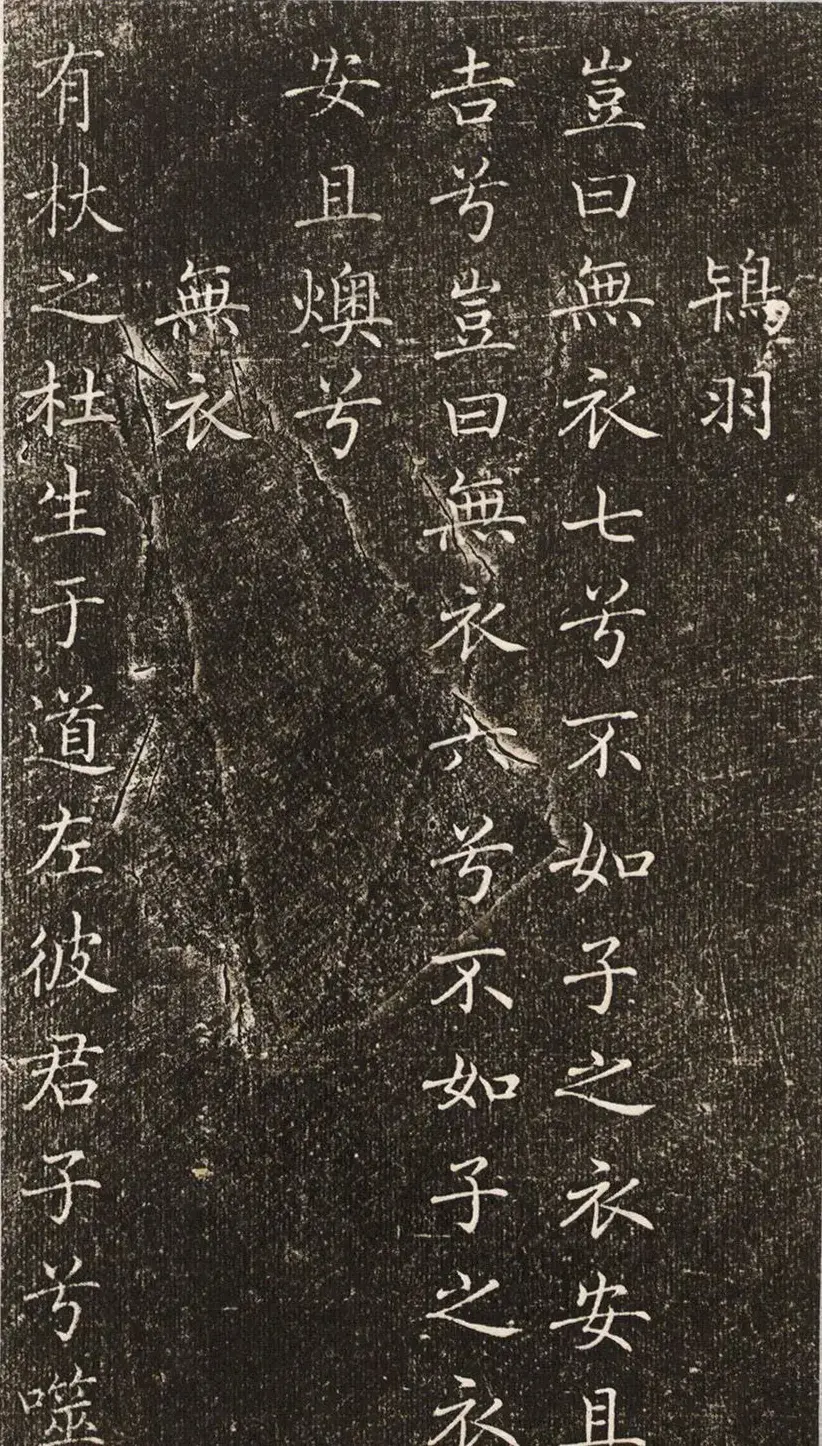 鴇羽
豈曰無衣七兮不如子之衣安且
吉兮豈曰無衣六兮不如子之衣
安且燠兮
無衣
有杕之杜生于道左彼君子兮噬